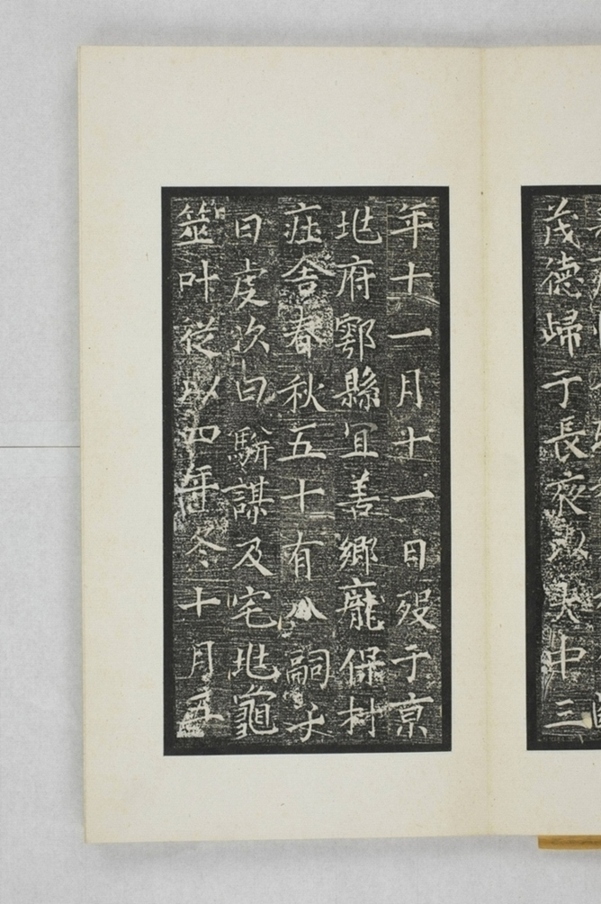 茂德歸于長夜以大中三
年十一月十一日歿于京
兆府鄠縣宜善鄉龐保村
庄舍春秋五十有八嗣子
曰虔次曰騈謀及宅兆龜
筮叶從以四年冬十月五